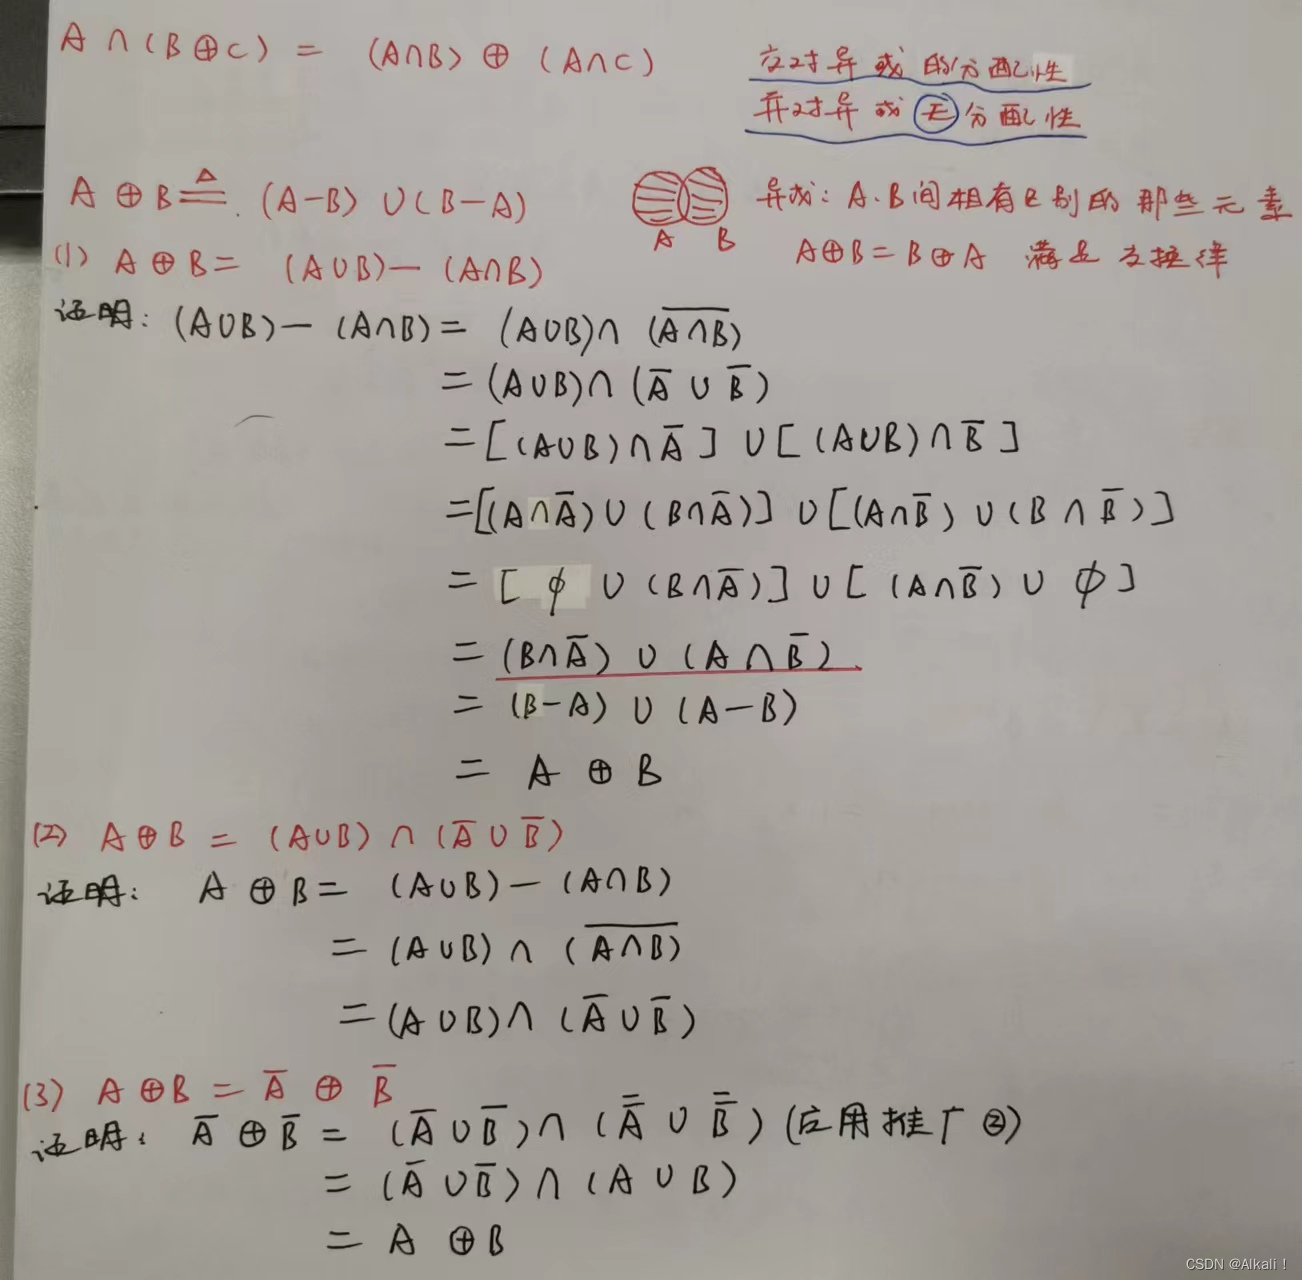 A∩(B⊕C) = (A∩B)⊕(A∩C)
交对异或的分配性
并对异或无分配性
A⊕B ≜ (A-B)∪(B-A)
A B
异或: A.B间相有区别的那些元素
A⊕B=B⊕A 满足交换律
(1) A⊕B = (A∪B)-(A∩B)
证明: (A∪B)-(A∩B) = (A∪B)∩(\overline{A∩B})
= (A∪B)∩(Ā∪B̄)
= [(A∪B)∩Ā]∪[(A∪B)∩B̄]
= [(A∩Ā)∪(B∩Ā)]∪[(A∩B̄)∪(B∩B̄)]
= [φ∪(B∩Ā)]∪[(A∩B̄)∪φ]
= (B∩Ā)∪(A∩B̄)
= (B-A)∪(A-B)
= A⊕B
(2) A⊕B = (A∪B)∩(Ā∪B̄)
证明: A⊕B = (A∪B)-(A∩B)
= (A∪B)∩(\overline{A∩B})
= (A∪B)∩(Ā∪B̄)
(3) A⊕B = Ā⊕B̄
证明: Ā⊕B̄ = (Ā∪B̄)∩(A̿∪B̿) (应用推广②)
= (Ā∪B̄)∩(A∪B)
= A⊕B
CSDN @Alkali！